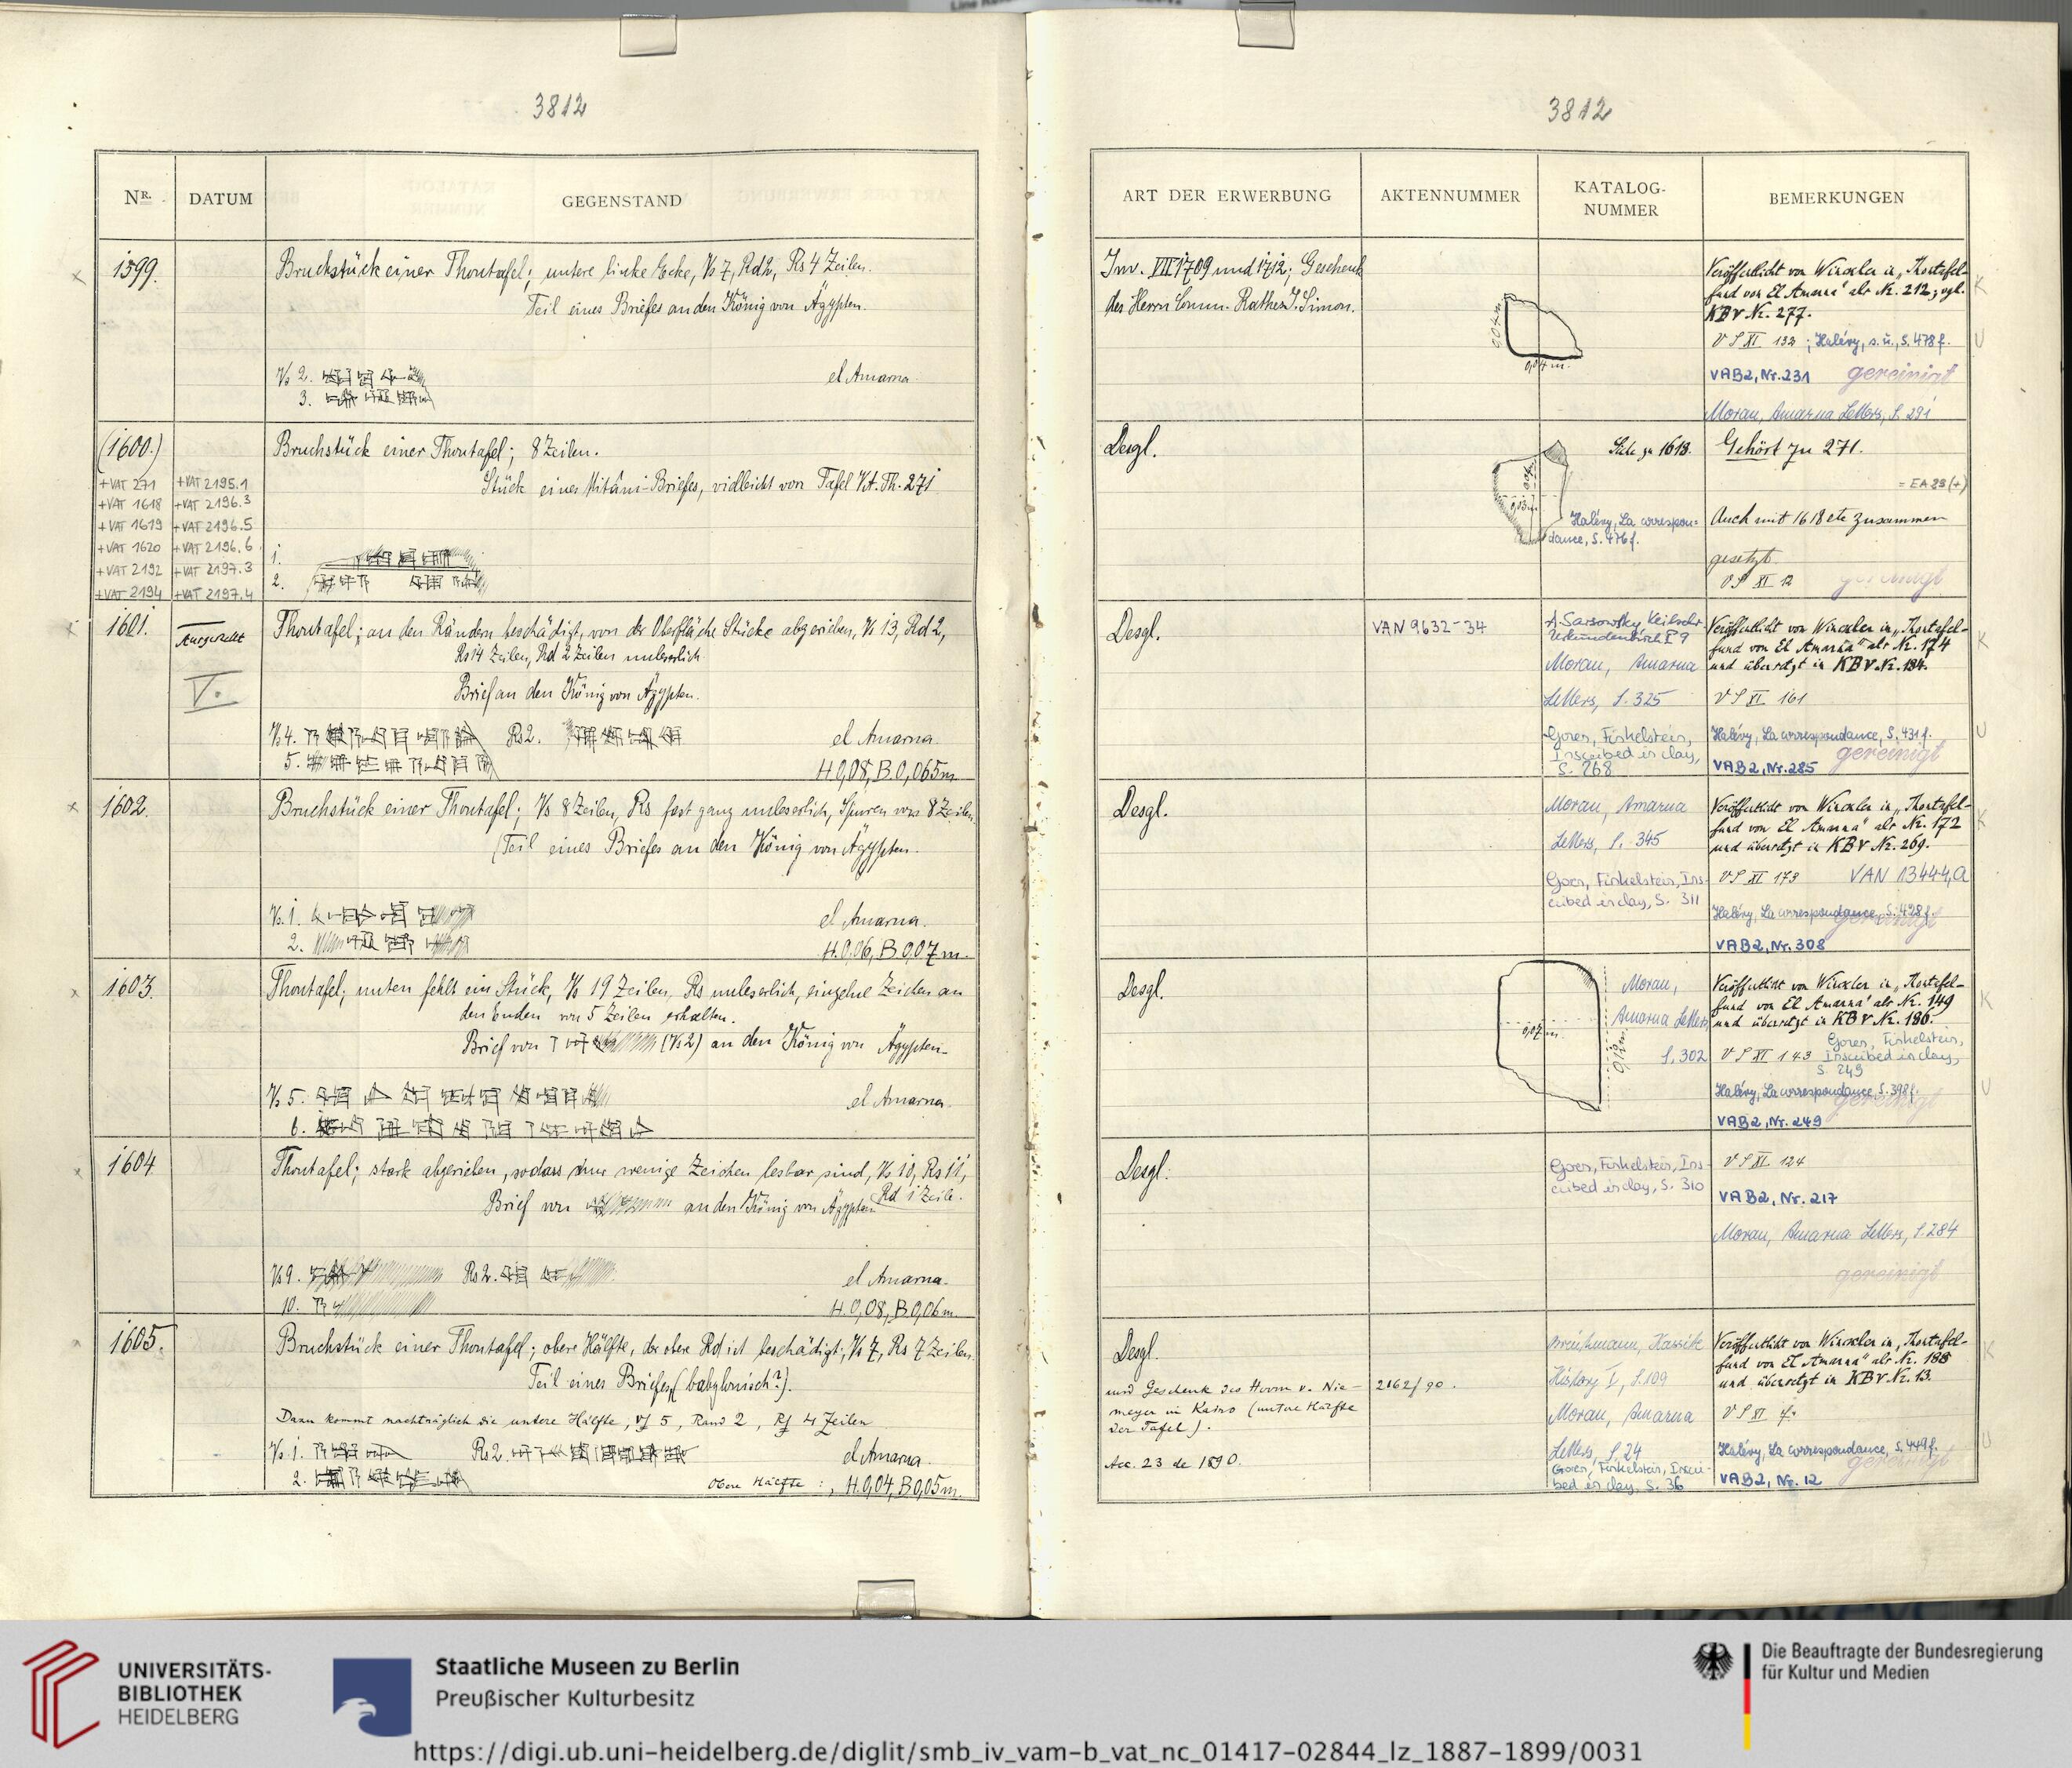 3812
NR. DATUM GEGENSTAND
1599. Bruchstück einer Thontafel; untere linke Ecke, Vs 7, Rd 2, Rs 4 Zeilen.
Teil eines Briefes an den König von Ägypten.
Vs 2.
el Amarna.
3.
(1600.) Bruchstück einer Thontafel; 8 Zeilen.
+VAT 271 +VAT 2195.1
Stück eines Mitâni-Briefes, vielleicht von Tafel V.A.Th. 271
+VAT 1618 +VAT 2196.3
+VAT 1619 +VAT 2196.5
+VAT 1620 +VAT 2196.6
1.
+VAT 2192 +VAT 2197.3
2.
+VAT 2194 +VAT 2197.4
1601. Ausgestellt Thontafel; an den Rändern beschädigt, von der Oberfläche Stücke abgerieben, Vs 13, Rd 2,
Rs 14 Zeilen, Rd 2 Zeilen unleserlich
V.
Brief an den König von Ägypten.
Vs 4. Rs 2. el Amarna.
5. H. 0,08, B. 0,065 m
1602. Bruchstück einer Thontafel; Vs 8 Zeilen, Rs fast ganz unleserlich, Spuren von 8 Zeilen.
(Teil eines Briefes an den König von Ägypten.
Vs. 1. el Amarna.
2. H. 0,06, B. 0,07 m.
1603. Thontafel; unten fehlt ein Stück, Vs 19 Zeilen, Rs unleserlich, einzelne Zeichen an
den Enden von 5 Zeilen erhalten.
Brief von (Vs 2) an den König von Ägypten.
Vs 5. el Amarna.
6.
1604 Thontafel; stark abgerieben, sodass nur wenige Zeichen lesbar sind, Vs 10, Rs 11,
Rd 1 Zeile.
Brief von an den König von Ägypten
Vs 9. Rs 2. el Amarna.
10. H. 0,08, B. 0,06 m.
1605. Bruchstück einer Thontafel; obere Hälfte, der obere Rd ist beschädigt, Vs 7, Rs 7 Zeilen.
Teil eines Briefes (babylonisch?).
Dazu kommt nachträglich die untere Hälfte, Vs 5, Rand 2, Rs 4 Zeilen
Vs 1. Rs 2. el Amarna.
2. Obere Hälfte: H. 0,04, B. 0,05 m.
3812
ART DER ERWERBUNG AKTENNUMMER KATALOG-NUMMER BEMERKUNGEN
Inv. VII 1709 und 1712; Geschenk
des Herrn Comm. Rathes J. Simon.
0,04 m.
Veröffentlicht von Winckler in „Thontafel-
fund von El Amarna" als Nr. 212; vgl.
KB V Nr. 277.
VS XI 132; Halévy, s. u., S. 478 f.
VAB 2, Nr. 231 gereinigt
Moran, Amarna Letters, S. 291
K
U
Desgl.
Siehe zu 1618.
Gehört zu 271.
= EA 29 (+)
Halévy, La correspon-
dance, S. 476 f.
Auch mit 1618 etc zusammen
gesetzt
VS XI 12 gereinigt
Desgl. VAN 9632-34
A. Sarsowsky, Keilschr.
Urkundenbuch I 9
Moran, Amarna
Letters, S. 325
Goren, Finkelstein,
Inscribed in clay,
S. 268
Veröffentlicht von Winckler in „Thontafel-
fund von El Amarna" als Nr. 174
und übersetzt in KB V Nr. 184.
VS XI 161
Halévy, La correspondance, S. 431 f.
gereinigt
VAB 2, Nr. 285
K
U
Desgl.
Moran, Amarna
Letters, S. 345
Goren, Finkelstein, Ins-
cribed in clay, S. 311
Veröffentlicht von Winckler in „Thontafel-
fund von El Amarna" als Nr. 172
und übersetzt in KB V Nr. 269.
VS XI 173 VAN 13444,a
Halévy, La correspondance, S. 428 f.
gereinigt
VAB 2, Nr. 308
K
Desgl.
0,07 m.
0,12 m.
Moran,
Amarna Letters
S. 302
Veröffentlicht von Winckler in „Thontafel-
fund von El Amarna" als Nr. 149
und übersetzt in KB V Nr. 186.
VS XI 143
Goren, Finkelstein,
Inscribed in clay,
S. 249
Halévy, La correspondance, S. 398 f.
gereinigt
VAB 2, Nr. 249
K
U
Desgl.
Goren, Finkelstein, Ins-
cribed in clay, S. 310
VS XI 124
VAB 2, Nr. 217
Moran, Amarna Letters, S. 284
gereinigt
Desgl.
und Geschenk des Herrn v. Nie-
meyer in Kairo (untere Hälfte
der Tafel).
Acc. 23 de 1890.
2162/90.
History I, S. 109
Moran, Amarna
Letters, S. 24
Goren, Finkelstein, Inscri-
bed in clay, S. 36
Veröffentlicht von Winckler in „Thontafel-
fund von El Amarna" als Nr. 188
und übersetzt in KB V Nr. 13.
VS XI 4.
Halévy, La correspondance, S. 449 f.
gereinigt
VAB 2, Nr. 12
K
U
UNIVERSITÄTS-
BIBLIOTHEK
HEIDELBERG
Staatliche Museen zu Berlin
Preußischer Kulturbesitz
Die Beauftragte der Bundesregierung
für Kultur und Medien
https://digi.ub.uni-heidelberg.de/diglit/smb_iv_vam-b_vat_nc_01417-02844_lz_1887-1899/0031